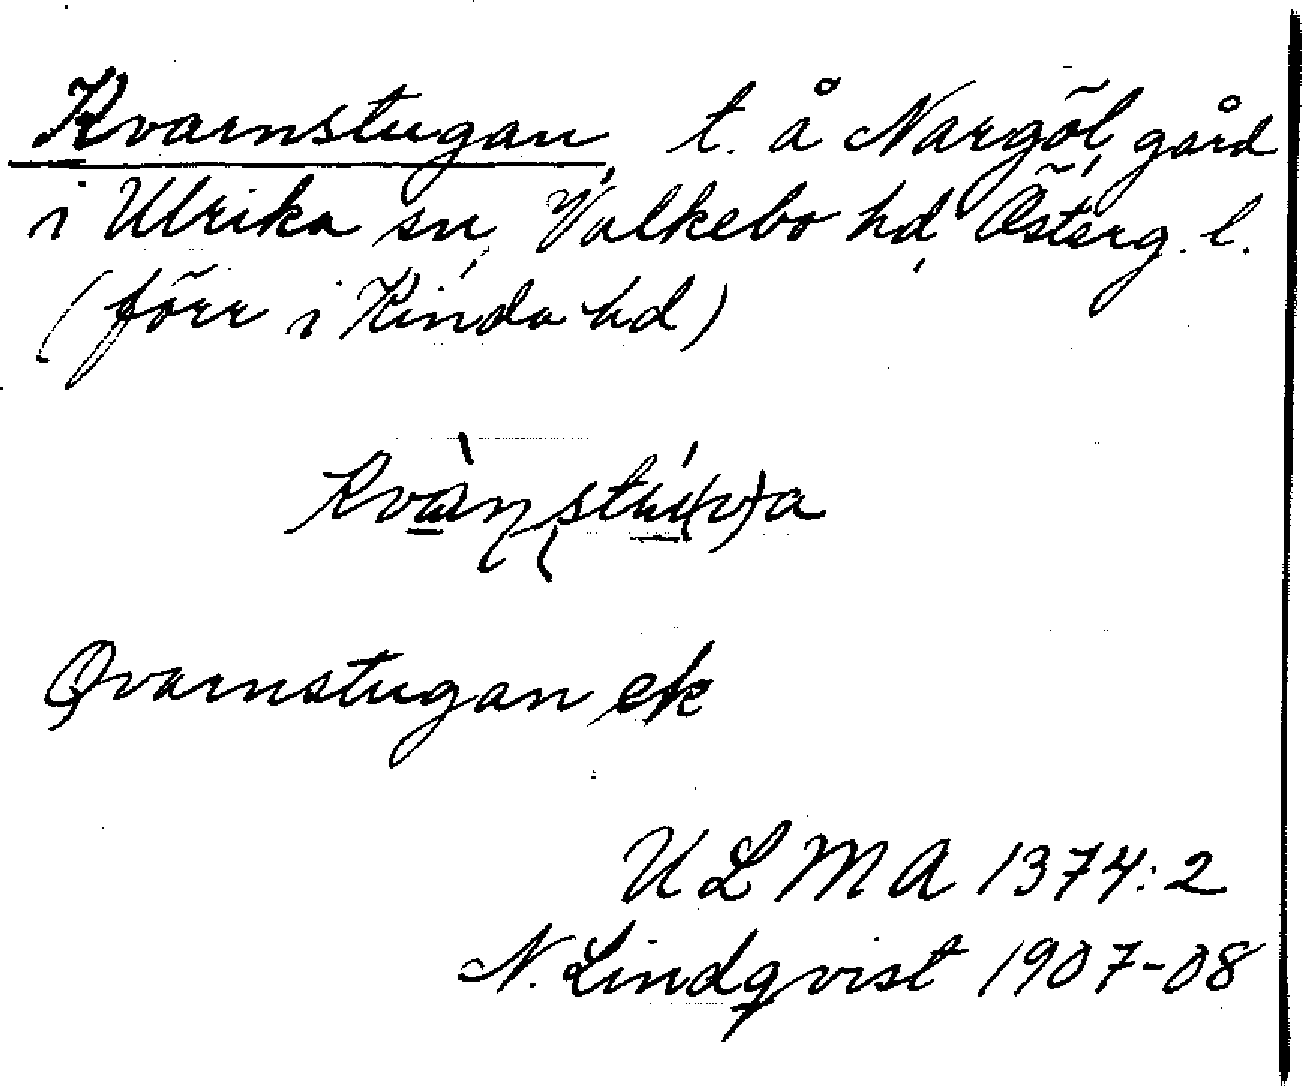 Kvarnstugan, t. å Nargöl, gård
i Ulrika sn, Valkebo hd, Österg. l.
(förr i Kinda hd)
Kvànstú(v)a
Qvarnstugan ek
ULMA 1374:2
N. Lindqvist 1907-08